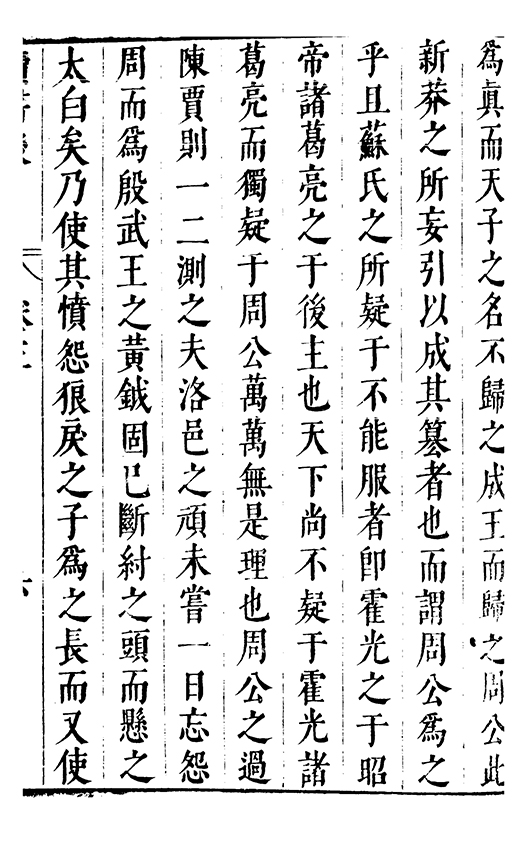 爲眞而天子之名不歸之成王而歸之周公此
新莽之所妄引以成其篡者也而謂周公爲之
乎且蘇氏之所疑于不能服者卽霍光之于昭
帝諸葛亮之于後主也天下尚不疑于霍光諸
葛亮而獨疑于周公萬萬無是理也周公之過
陳賈則一二測之夫洛邑之頑未嘗一日忘怨
周而爲殷武王之黃鉞固已斷紂之頭而懸之
太白矣乃使其憤怨狠戾之子爲之長而又使
卷三